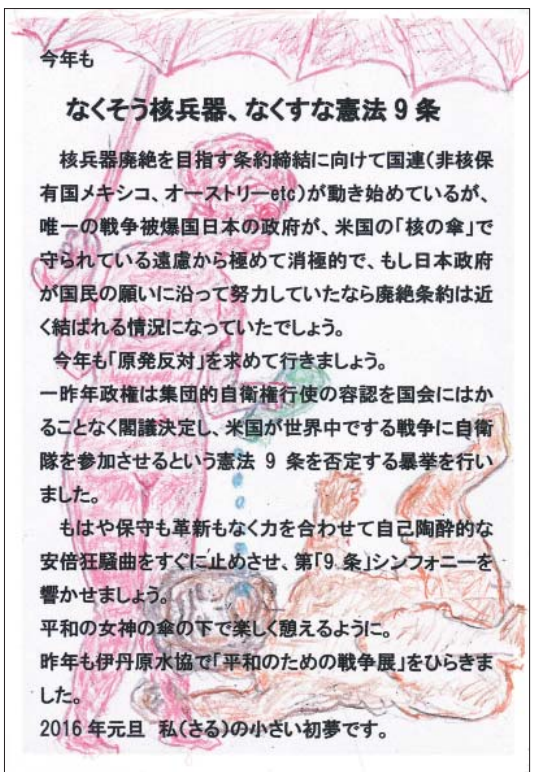 今年も
なくそう核兵器、なくすな憲法９条
核兵器廃絶を目指す条約締結に向けて国連(非核保
有国メキシコ、オーストリーetc)が動き始めているが、
唯一の戦争被爆国日本の政府が、米国の「核の傘」で
守られている遠慮から極めて消極的で、もし日本政府
が国民の願いに沿って努力していたなら廃絶条約は近
く結ばれる情況になっていたでしょう。
今年も「原発反対」を求めて行きましょう。
一昨年政権は集団的自衛権行使の容認を国会にはか
ることなく閣議決定し、米国が世界中でする戦争に自衛
隊を参加させるという憲法 9 条を否定する暴挙を行い
ました。
もはや保守も革新もなく力を合わせて自己陶酔的な
安倍狂騒曲をすぐに止めさせ、第「9 条」シンフォニーを
響かせましょう。
平和の女神の傘の下で楽しく憩えるように。
昨年も伊丹原水協で「平和のための戦争展」をひらきま
した。
2016 年元旦　私(さる)の小さい初夢です。